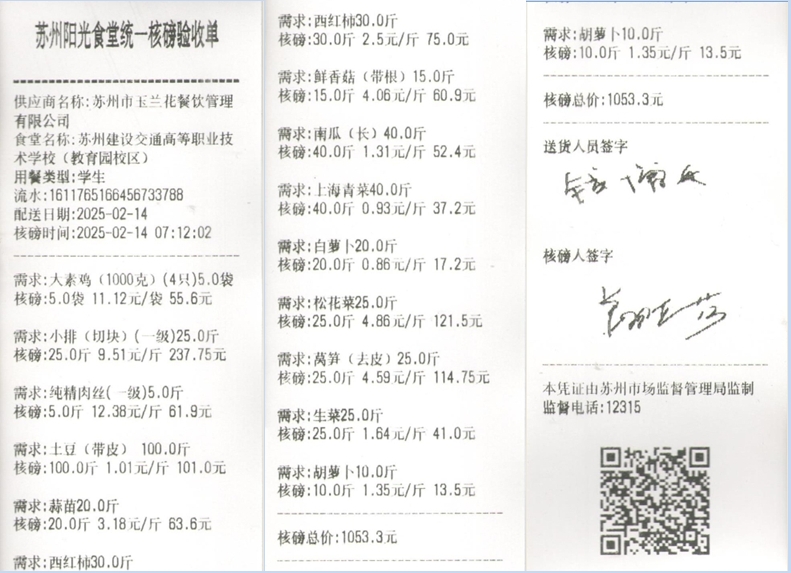 苏州阳光食堂统一核磅验收单
供应商名称:苏州市玉兰花餐饮管理
有限公司
食堂名称:苏州建设交通高等职业技
术学校(教育园校区)
用餐类型:学生
流水:1611765166456733788
配送日期:2025-02-14
核磅时间:2025-02-14 07:12:02
需求:大素鸡(1000克)(4只)5.0袋
核磅:5.0袋 11.12元/袋 55.6元
需求:小排(切块)(一级)25.0斤
核磅:25.0斤 9.51元/斤 237.75元
需求:纯精肉丝(一级)5.0斤
核磅:5.0斤 12.38元/斤 61.9元
需求:土豆(带皮) 100.0斤
核磅:100.0斤 1.01元/斤 101.0元
需求:蒜苗20.0斤
核磅:20.0斤 3.18元/斤 63.6元
需求:西红柿30.0斤
需求:西红柿30.0斤
核磅:30.0斤 2.5元/斤 75.0元
需求:鲜香菇(带根)15.0斤
核磅:15.0斤 4.06元/斤 60.9元
需求:南瓜(长)40.0斤
核磅:40.0斤 1.31元/斤 52.4元
需求:上海青菜40.0斤
核磅:40.0斤 0.93元/斤 37.2元
需求:白萝卜20.0斤
核磅:20.0斤 0.86元/斤 17.2元
需求:松花菜25.0斤
核磅:25.0斤 4.86元/斤 121.5元
需求:莴笋(去皮)25.0斤
核磅:25.0斤 4.59元/斤 114.75元
需求:生菜25.0斤
核磅:25.0斤 1.64元/斤 41.0元
需求:胡萝卜10.0斤
核磅:10.0斤 1.35元/斤 13.5元
核磅总价:1053.3元
需求:胡萝卜10.0斤
核磅:10.0斤 1.35元/斤 13.5元
核磅总价:1053.3元
送货人员签字
核磅人签字
本凭证由苏州市场监督管理局监制
监督电话:12315